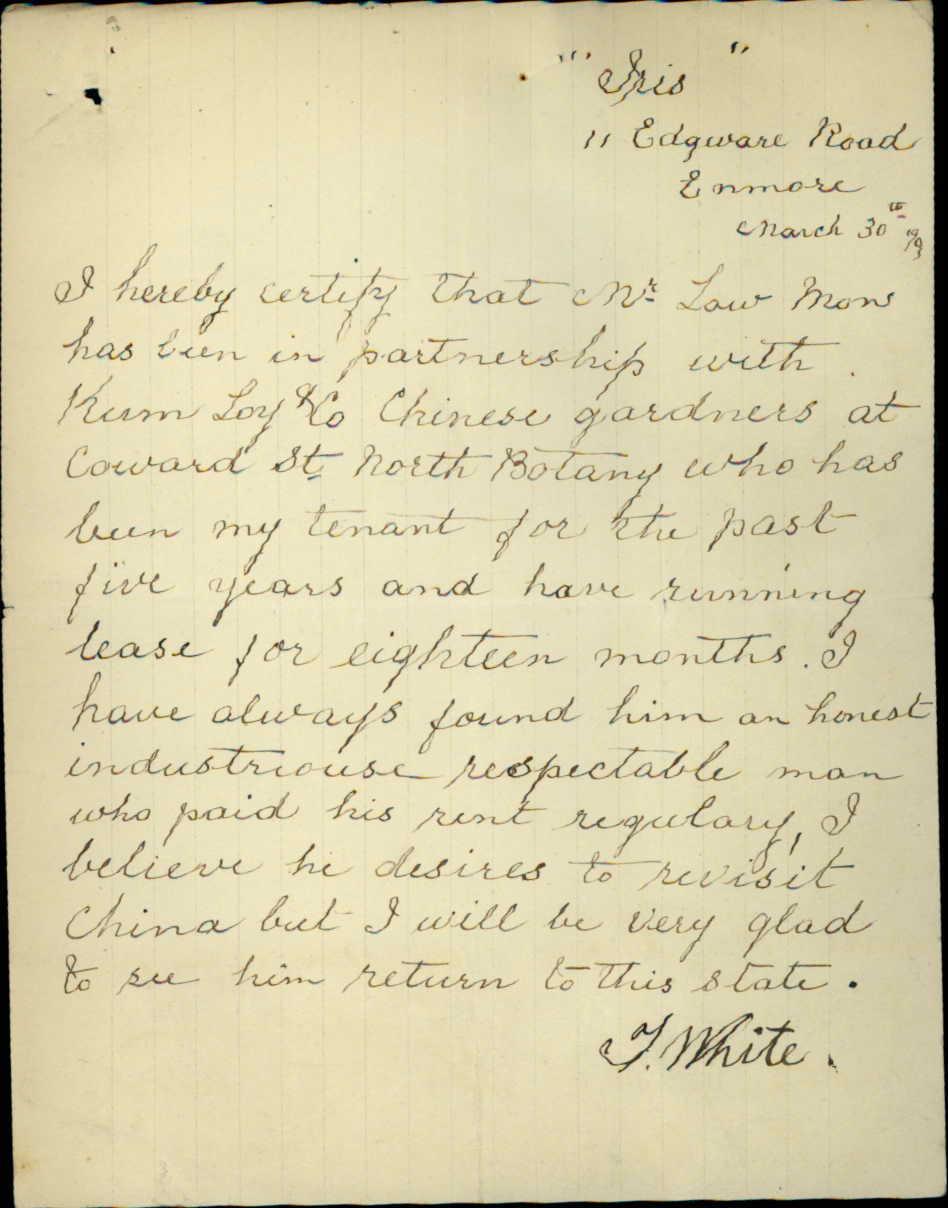 "Iris"
11 Edgware Road
Enmore
March 30th
I hereby certify that Mr Low Mow
has been in partnership with
Kum Loy & Co Chinese gardners at
Coward St North Botany who has
been my tenant for the past
five years and have running
lease for eighteen months. I
have always found him an honest
industriouse respectable man
who paid his rent regulary, I
believe he desires to revisit
China but I will be very glad
to see him return to this state.
T. White.